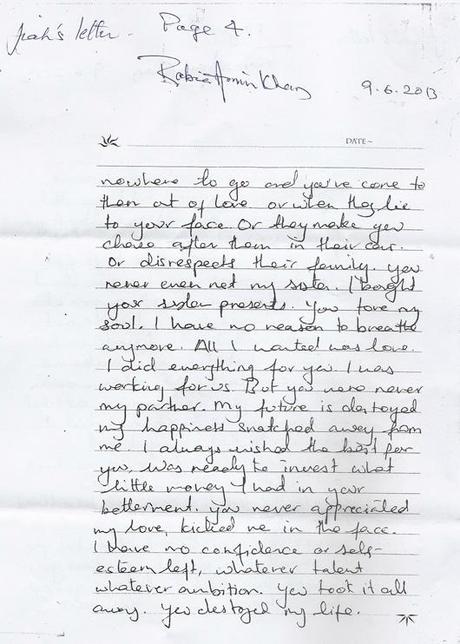 Jiah's letter - Page 4.
Rabia Amin Khan
9.6.2013
DATE-
nowhere to go and you've come to
them out of love or when they lie
to your face. Or they make you
chase after them in their car.
Or disrespects their family. you
never even met my sister. I bought
your sister presents. You tore my
soul. I have no reason to breathe
anymore. All I wanted was love.
I did everything for you. I was
working for us. But you were never
my partner. My future is destroyed
my happiness snatched away from
me. I always wished the best for
you, was ready to invest what
little money I had in your
betterment. you never appreciated
my love, kicked me in the face.
I have no confidence or self-
esteem left, whatever talent
whatever ambition. You took it all
away. You destroyed my life.